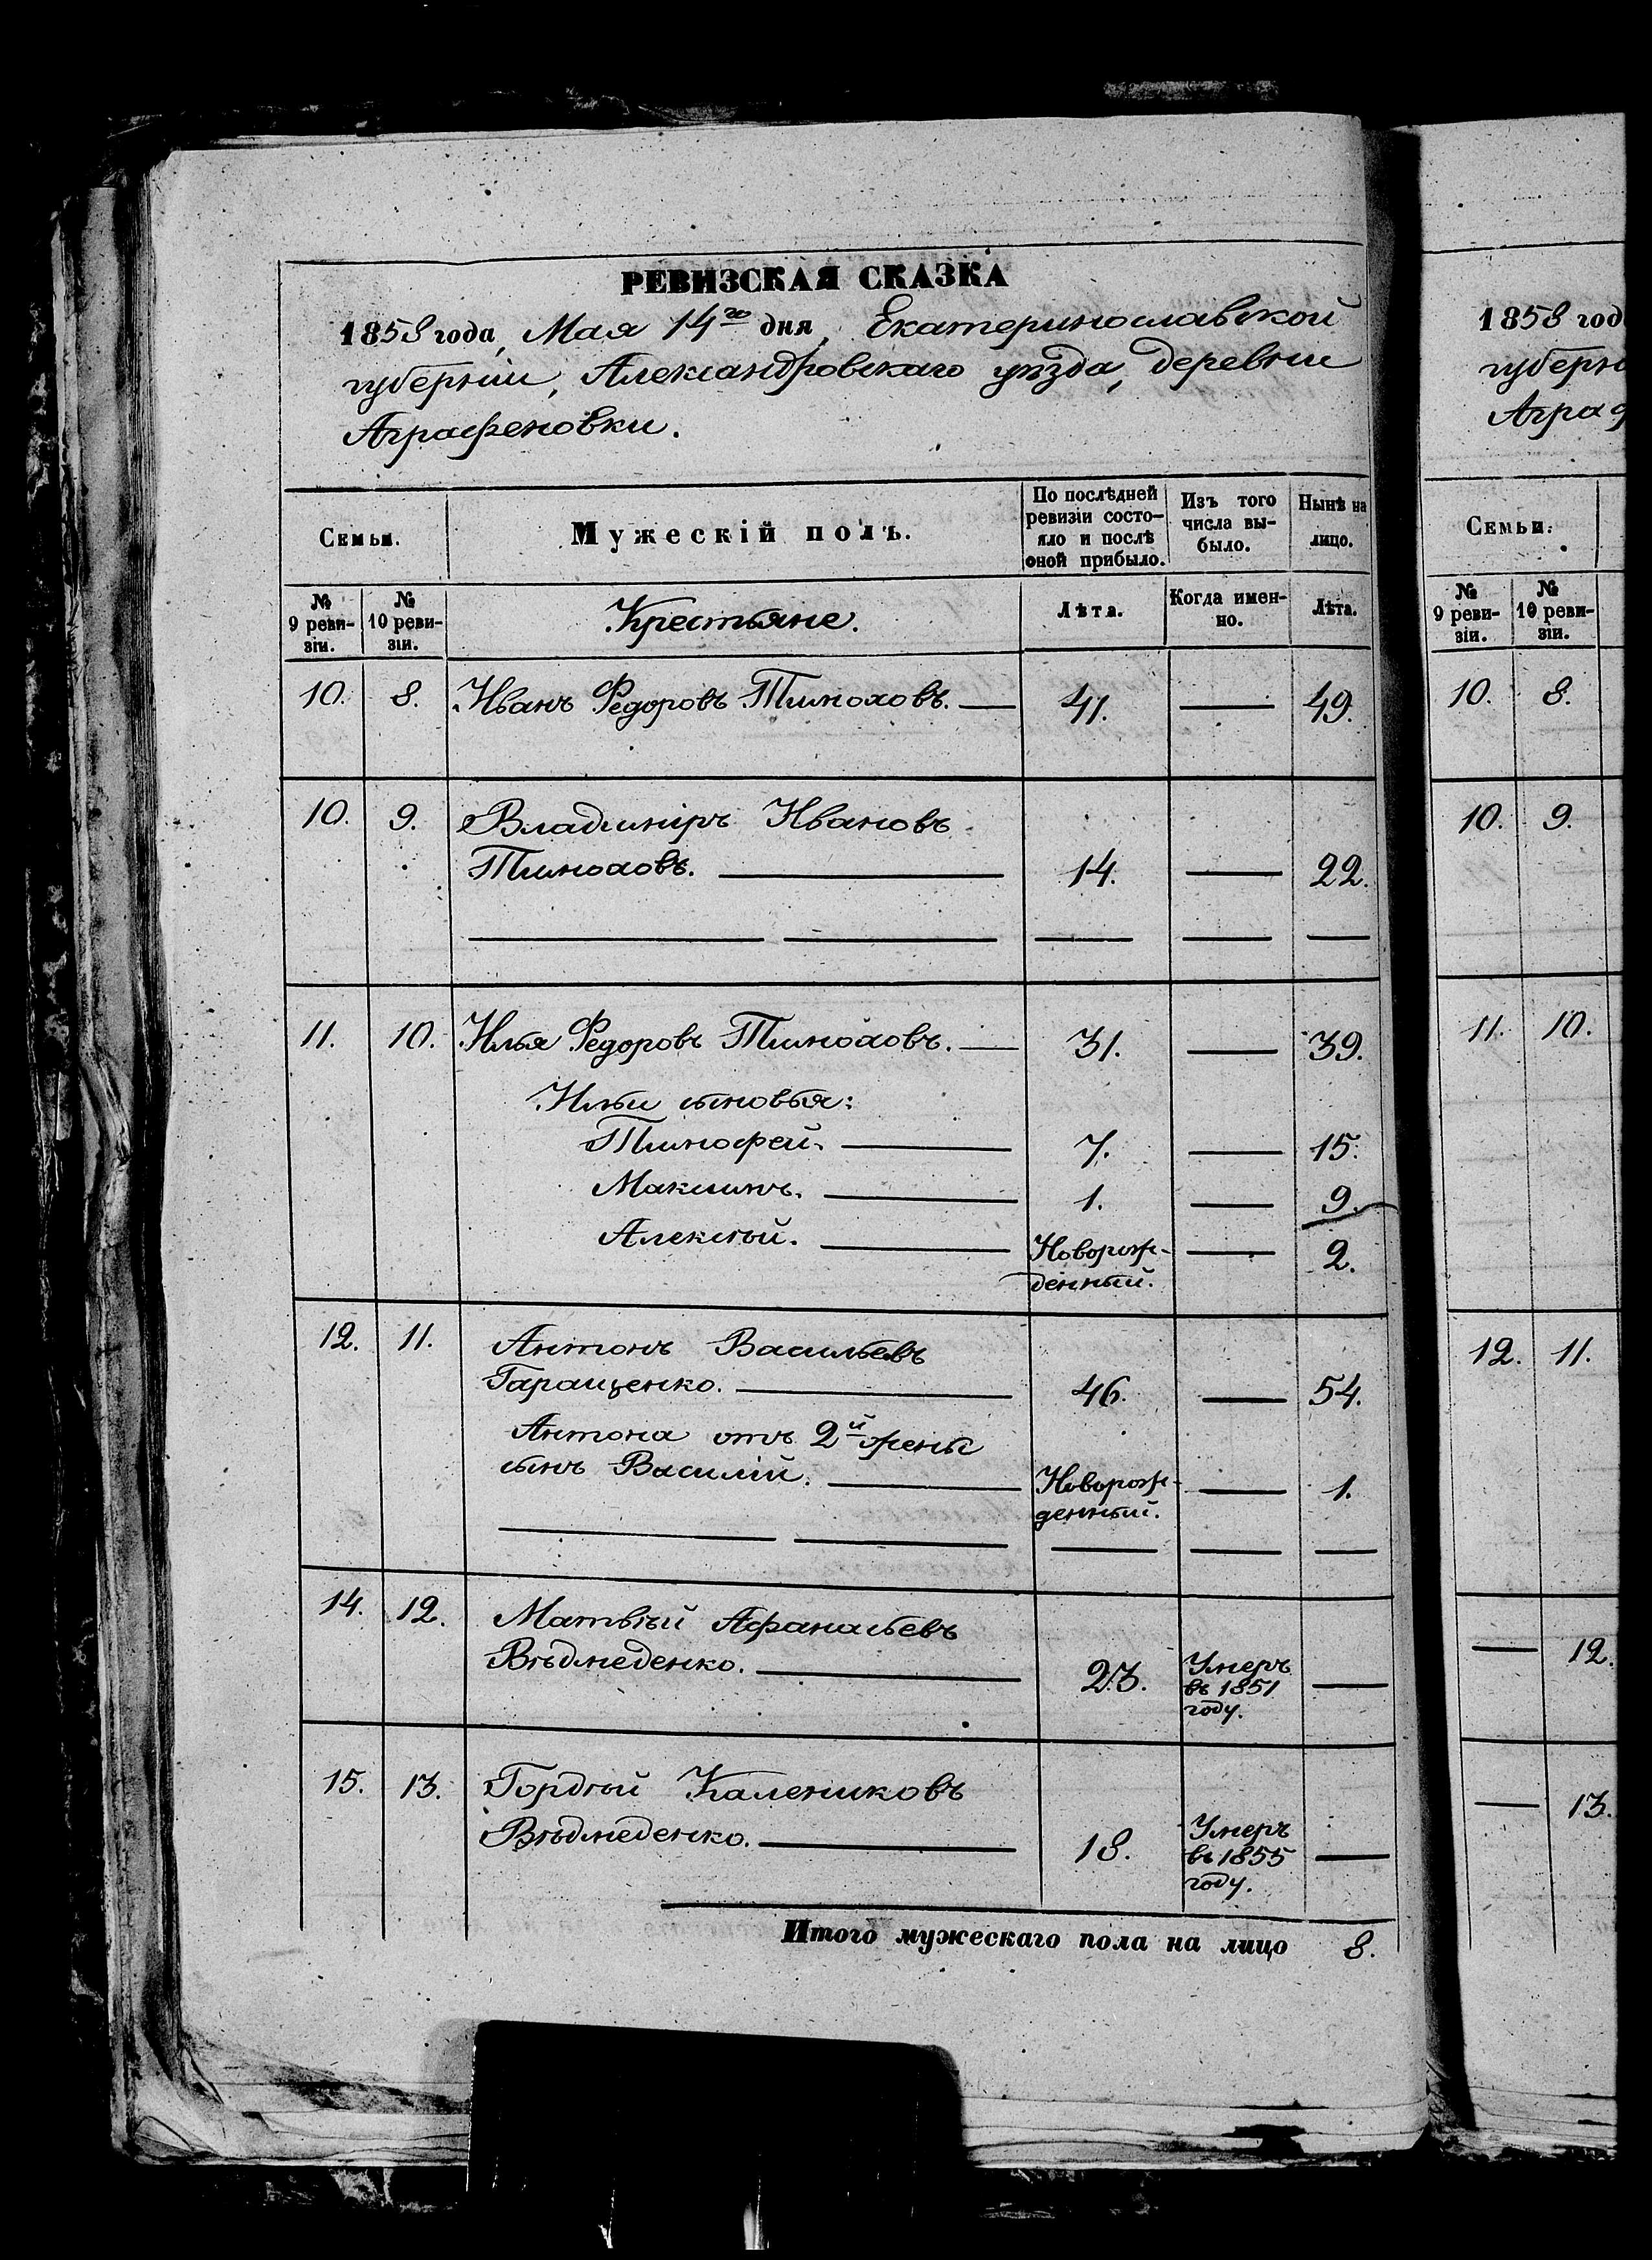 РЕВИЗСКАЯ СКАЗКА
1858 года, Мая 14го дня, Екатеринославской
губерніи, Александровскаго уѣзда, деревни
Аграфеновки.
Семьи.
Мужескій полъ.
По послѣдней
ревизіи состо-
яло и послѣ
оной прибыло.
Изъ того
числа вы-
было.
Нынѣ на
лицо.
№
9 реви-
зіи.
№
10 реви-
зіи.
Крестьяне.
Лѣта.
Когда имен-
но.
Лѣта.
10. 8. Иванъ Федоровъ Тимоховъ. — 41. — 49.
10. 9. Владиміръ Ивановъ
Тимоховъ. — 14. — 22.
11. 10. Илья Федоровъ Тимоховъ. — 31. — 39.
Ильи сыновья:
Тимофей. — 7. — 15.
Максимъ. — 1. — 9.
Алексѣй. — Оноворож- — 2.
денный.
12. 11. Антонъ Васильевъ
Гаращенко. — 46. — 54.
Антона отъ 2й жены
сынъ Василій. — Новорож- — 1.
денный.
14. 12. Матвѣй Афанасьевъ
Вѣдмеденко. — 23. Умеръ —
въ 1851
году.
15. 13. Гордѣй Калениковъ
Вѣдмеденко. — 18. Умеръ —
въ 1855
году.
Итого мужескаго пола на лицо 8.
1858 год
губерн
Аграф
Семьи.
№
9 реви-
зіи.
№
10 реви-
зіи.
10. 8.
10. 9.
11. 10.
12. 11.
— 12.
— 13.